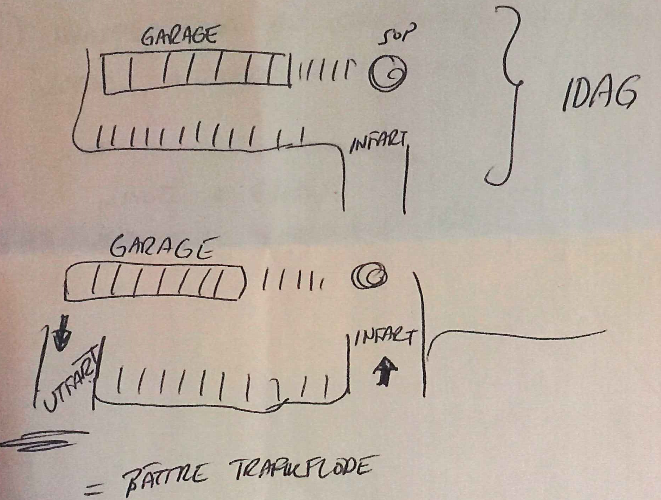 GARAGE
SOP
IDAG
INFART
GARAGE
INFART
UTFART
= BÄTTRE TRAFIKFLODE